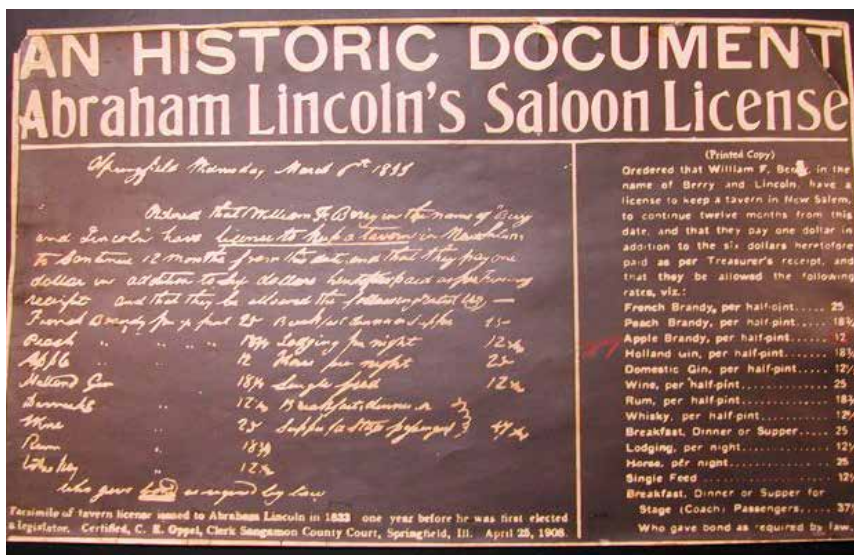 AN HISTORIC DOCUMENT
Abraham Lincoln's Saloon License
Springfield Wednesday March 6th 1833
Ordered that William F. Berry in the name of "Berry
and Lincoln" have license to keep a tavern in New Salem
to continue 12 months from this date and that they pay one
dollar in addition to six dollars heretofore paid as per Treasurers
receipt and that they be allowed the following rates (viz) —
French Brandy per ½ pint 25 Breakfast dinner or Supper 25
Peach " " " 18¾ Lodging per night 12½
Apple " 12 Horse per night 25
Holland Gin " 18¾ Single feed 12½
Domestic " 12½ Breakfast, dinner or
Wine " 25 Supper for Stage passengers 37½
Rum " 18¾
Whiskey " 12½
who gave bond as required by law
Facsimile of tavern license issued to Abraham Lincoln in 1833 one year before he was first elected
a legislator. Certified, C. E. Oppel, Clerk Sangamon County Court, Springfield, Ill. April 25, 1908.
(Printed Copy)
Oredered that William F. Berry, in the
name of Berry and Lincoln, have a
license to keep a tavern in New Salem,
to continue twelve months from this
date, and that they pay one dollar in
addition to the six dollars heretofore
paid as per Treasurer's receipt, and
that they be allowed the following
rates, viz.:
French Brandy, per half-pint..... 25
Peach Brandy, per half-pint..... 18¾
Apple Brandy, per half-pint..... 12
Holland Gin, per half-pint....... 18¾
Domestic Gin, per half-pint..... 12½
Wine, per half-pint.............. 25
Rum, per half-pint............... 18¾
Whisky, per half-pint............ 12½
Breakfast, Dinner or Supper..... 25
Lodging, per night............... 12½
Horse, per night................. 25
Single Feed ..................... 12½
Breakfast, Dinner or Supper for
Stage (Coach) Passengers..... 37½
Who gave bond as required by law.